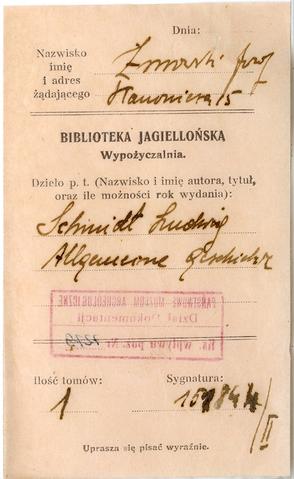 Dnia:
Nazwisko
imię
i adres
żądającego
Żurowski Józef
15
BIBLIOTEKA JAGIELLOŃSKA
Wypożyczalnia.
Dzieło p. t. (Nazwisko i imię autora, tytuł,
oraz ile możności rok wydania):
Schmidt Ludwig
Allgemeine Geschichte
PAŃSTWOWE MUZEUM ARCHEOLOGICZNE
Dział Dokumentacji
Ks. wpływu poz. Nr.
Ilość tomów:
Sygnatura:
1
II
Uprasza się pisać wyraźnie.